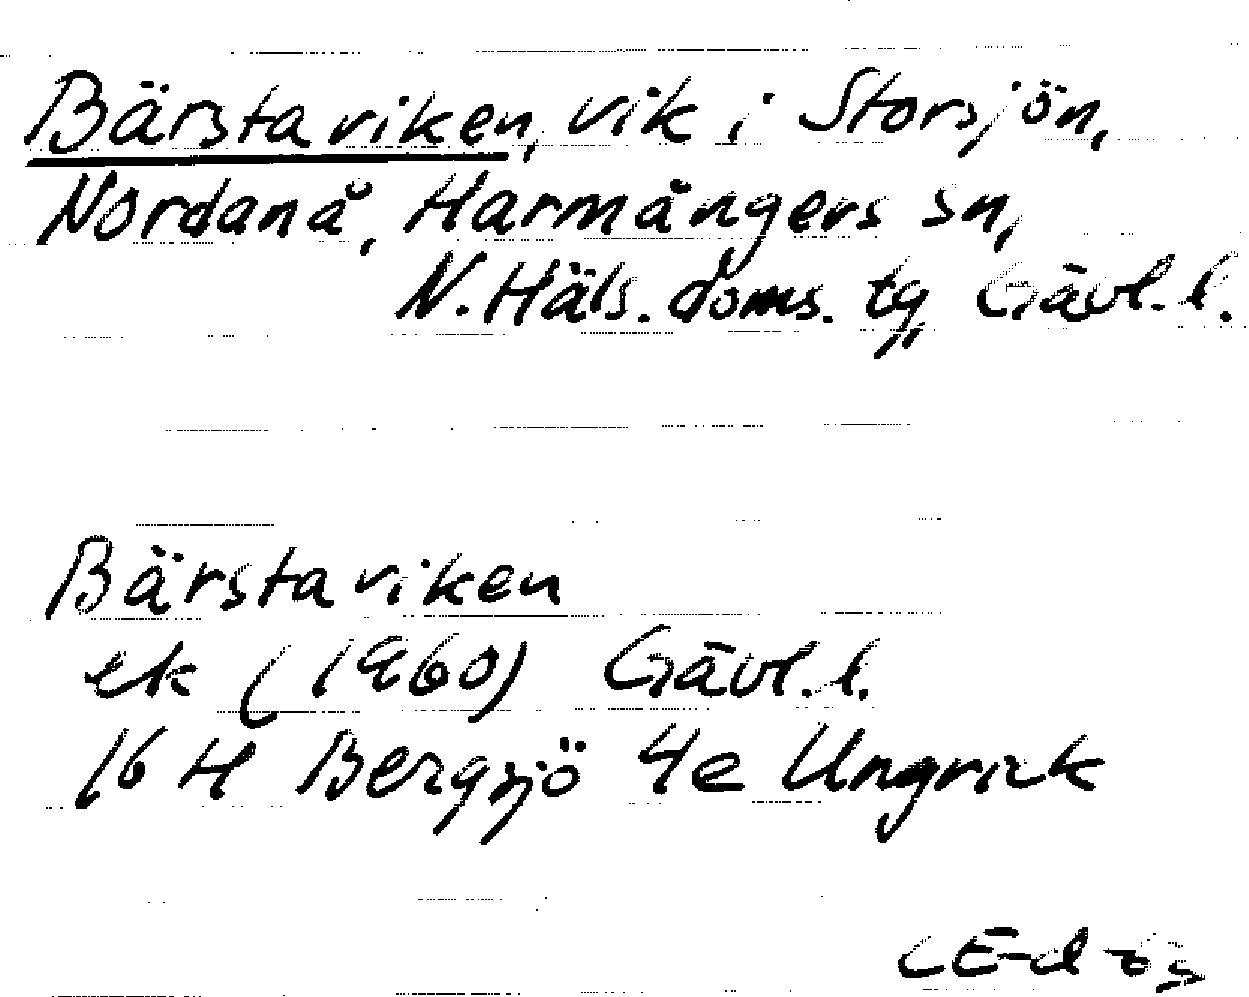 Bärstaviken, vik i Storsjön,
Nordanå, Harmångers sn,
N. Häls. doms. tg, Gävl. l.
Bärstaviken
ek (1960) Gävl. l.
16 H Bergsjö 4e